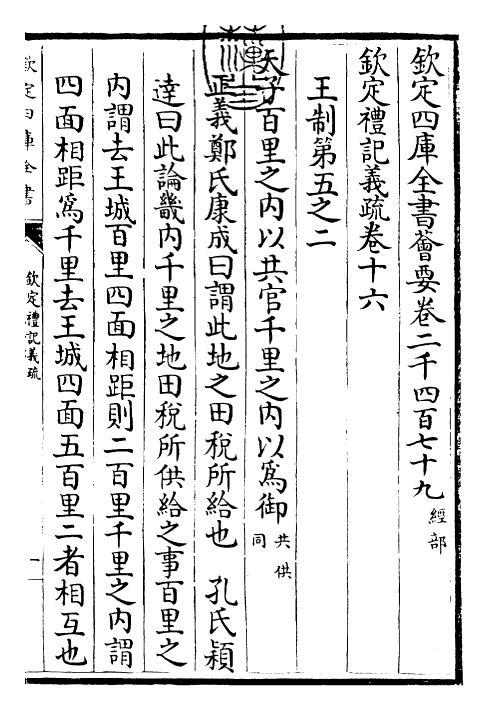 欽定四庫全書薈要卷二千四百七十九 經部
欽定禮記義疏卷十六
王制第五之二
天子百里之內以共官千里之內以為御 共供同
正義鄭氏康成曰謂此地之田稅所給也 孔氏穎
達曰此論畿內千里之地田稅所供給之事百里之
內謂去王城百里四面相距則二百里千里之內謂
四面相距為千里去王城四面五百里二者相互也
欽定四庫全書
欽定禮記義疏
一